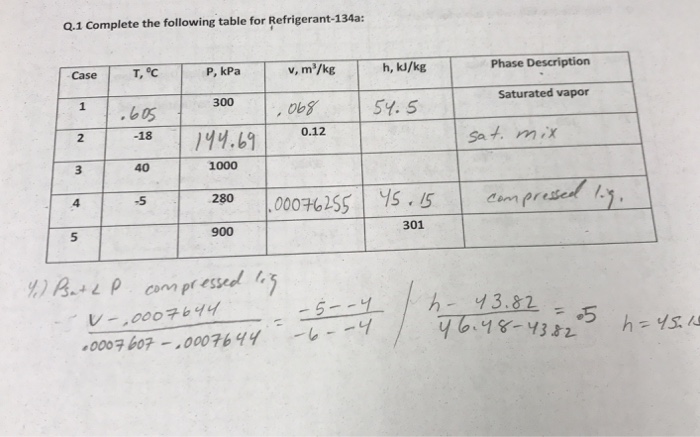 Q.1 Complete the following table for Refrigerant-134a:
Case T, °C P, kPa v, m³/kg h, kJ/kg Phase Description
1 .605 300 .068 54.5 Saturated vapor
2 -18 144.69 0.12 sat. mix
3 40 1000
4 -5 280 .00076255 45.15 compressed liq.
5 900 301
4.) Psat < P compressed liq
v-.0007644 / .0007607-.0007644 = -5--4 / -6--4 / h-43.82 / 46.48-43.82 = .5 h=45.15